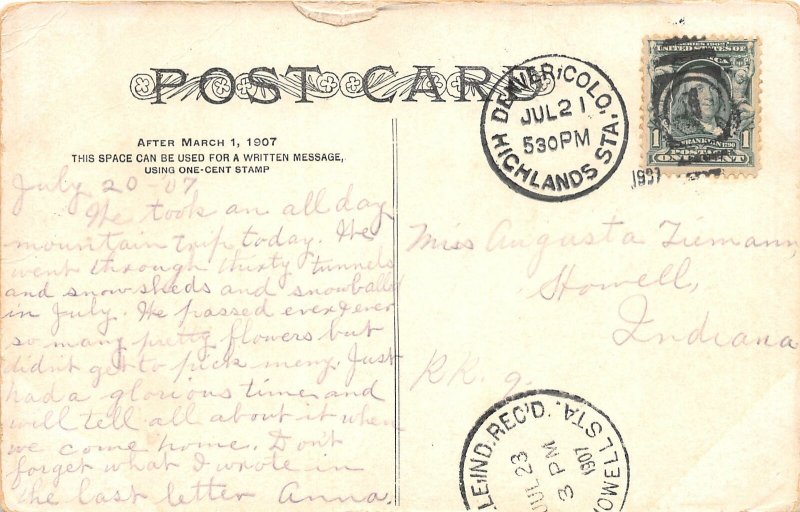 POST CARD
AFTER MARCH 1, 1907
THIS SPACE CAN BE USED FOR A WRITTEN MESSAGE,
USING ONE-CENT STAMP
July 20-'07
We took an all day
mountain trip today. We
went through thirty tunnels
and snow sheds and snowballed
in July. We passed ever & ever
so many pretty flowers but
didn't get to pick meny. Just
had a glorious time and
will tell all about it when
we come home. Don't
forget what I wrote in
the last letter Anna.
DENVER, COLO.
JUL 21
530PM
HIGHLANDS STA.
1907
SERIES 1902
UNITED STATES OF
FRANKLIN 1790
1 POSTAGE 1
ONE CENT
Miss Augusta Tiemann
Howell,
Indiana
RR. 9.
LE, IND. REC'D.
JUL 23
3 PM
1907
HOWELL STA.